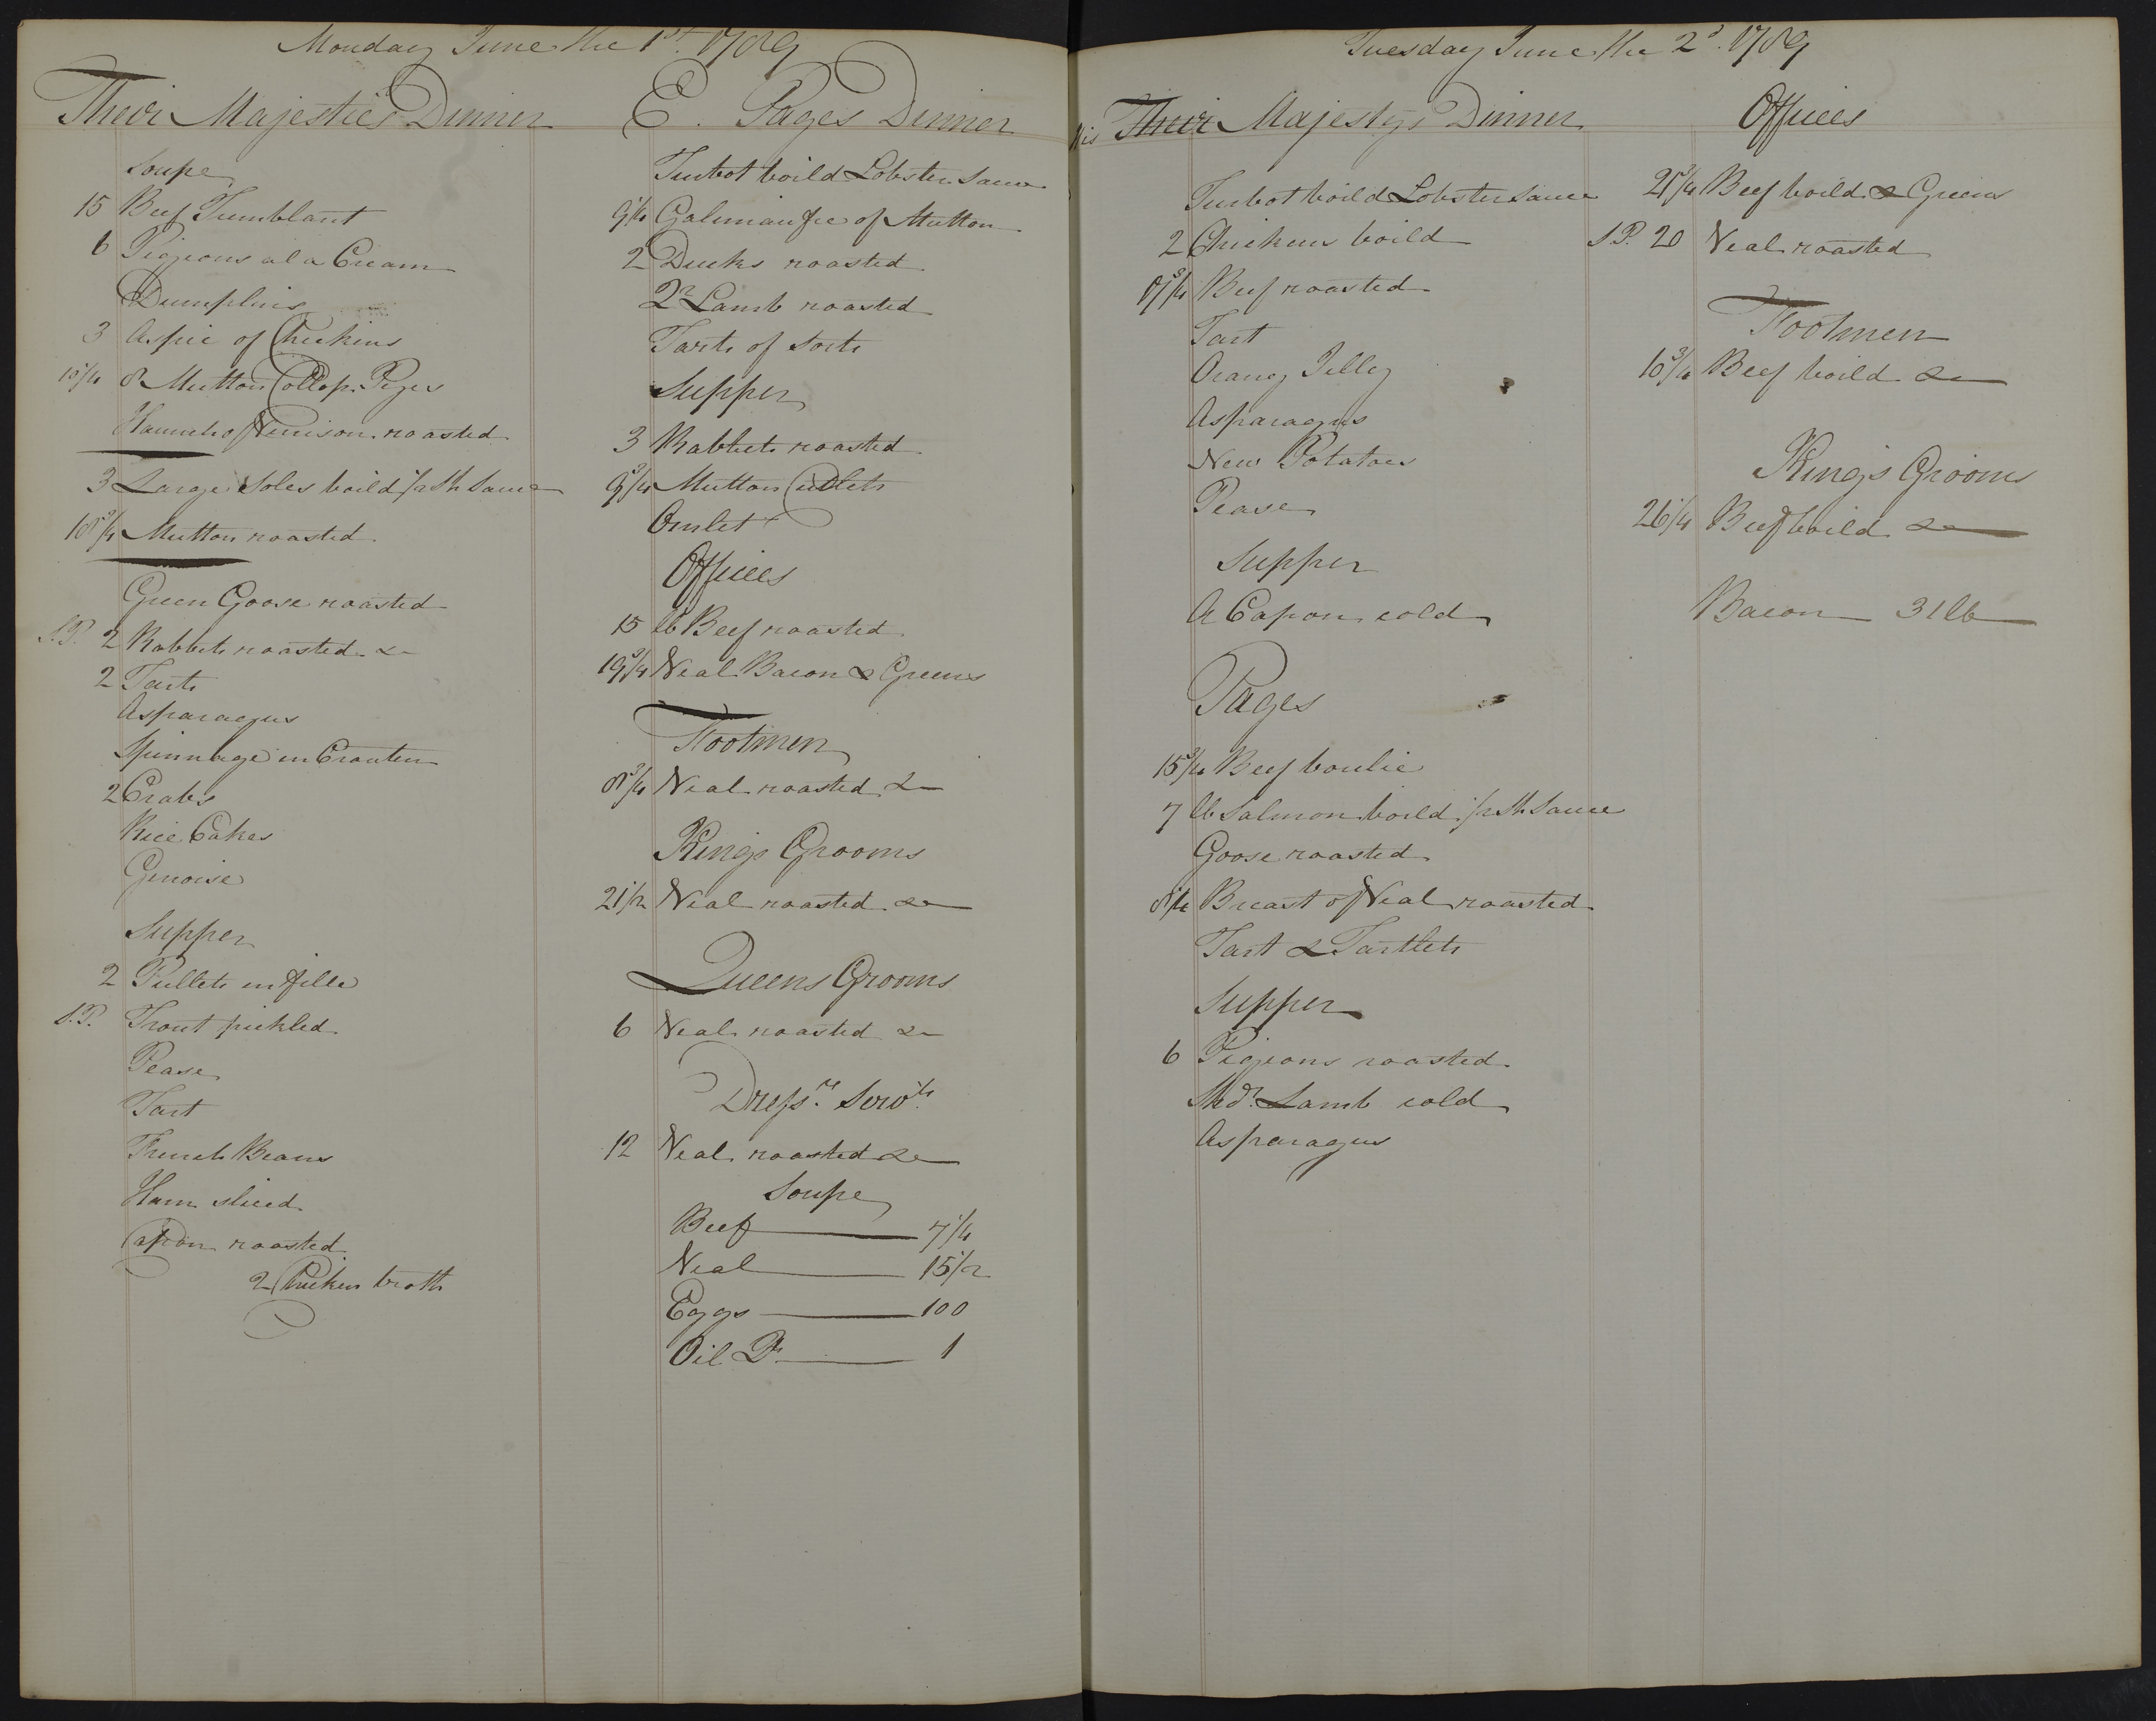 Monday June the 1st. 1789
Their Majesties Dinner
Soupe
15 Beef Tremblant
6 Pigeons al a Cream
Dumplins
3 Aspic of Chickins
Mutton Collop Pyes
Haunch of Venison roasted
3 Large Soles boild frsh Sauce
Mutton roasted
Green Goose roasted
S.P. 2 Rabbets roasted &c
2 Tarts
Asparagus
Spinnage en Crouten
2 Crabs
Rice Cakes
Genoise
Supper
2 Pullets en Gelle
S.P. Trout pickled
Pease
Tart
French Beans
Ham sliced
Capon roasted
2 Chicken broth
E. Pages Dinner
Turbot boild Lobster Sauce
9 1/4 Galimaufre of Mutton
2 Ducks roasted
2r Lamb roasted
Tarts of sorts
Supper
3 Rabbets roasted
9 3/4 Mutton Cutlets
Omlet
Offices
15 lb Beef roasted
19 3/4 Veal Bacon & Greens
Footmen
8 3/4 Veal roasted &c
Kings Grooms
21 1/2 Veal roasted &c
Queens Grooms
6 Veal roasted &c
Dressrs. Servts.
12 Veal roasted &c
Soupe
Beef 7 1/4
Veal 15 1/2
Eggs 100
Oil 1
Tuesday June the 2d. 1789
His Their Majestys Dinner
Turbot boild Lobster Sauce
2 Chickens boild
Beef roasted
Tart
Orang Jelley
Asparagus
New Potatoes
Pease
Supper
A Capon cold
Pages
15 3/4 Beef boulie
7 lb Salmon boild frsh Sauce
Goose roasted
8 1/4 Breast of Veal roasted
Tart & Tartlets
Supper
6 Pigeons roasted
Shdr. Lamb cold
Asparagus
Offices
Beef boild & Greens
S.P. 20 Veal roasted
Footmen
Beef boild &c
Kings Grooms
26 1/4 Beef boild &c
Bacon 31 lb